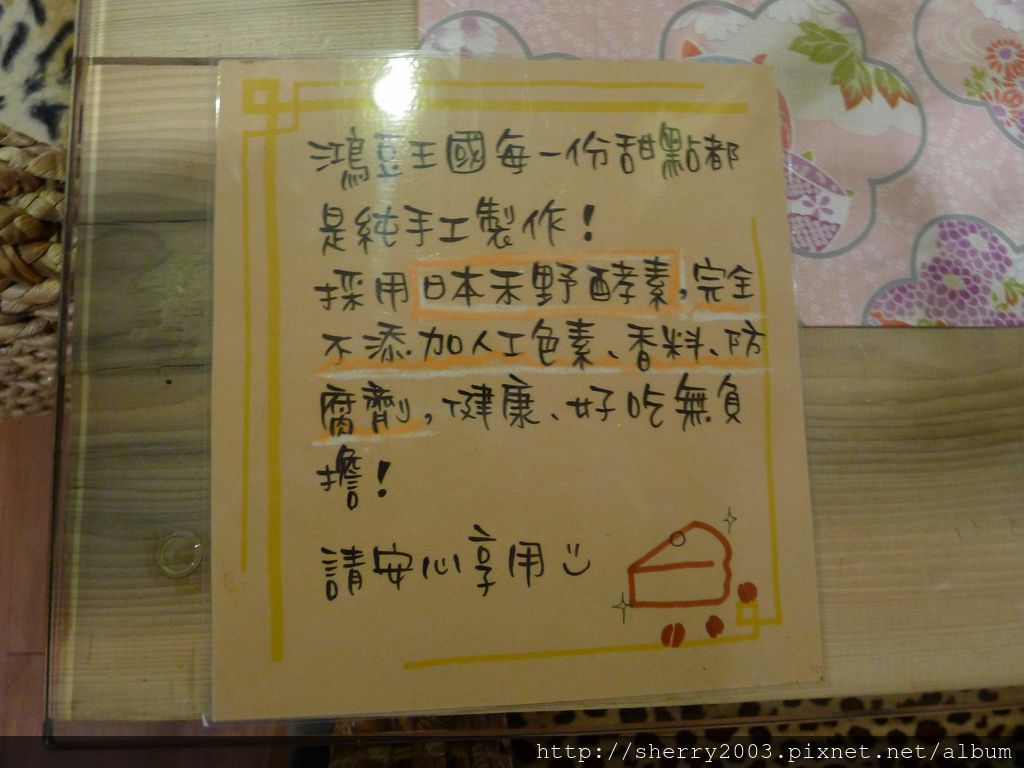 鴻豆王國每一份甜點都
是純手工製作!
採用日本禾野酵素,完全
不添加人工色素、香料、防
腐劑,健康、好吃無負
擔!
請安心享用
http://sherry2003.pixnet.net/album